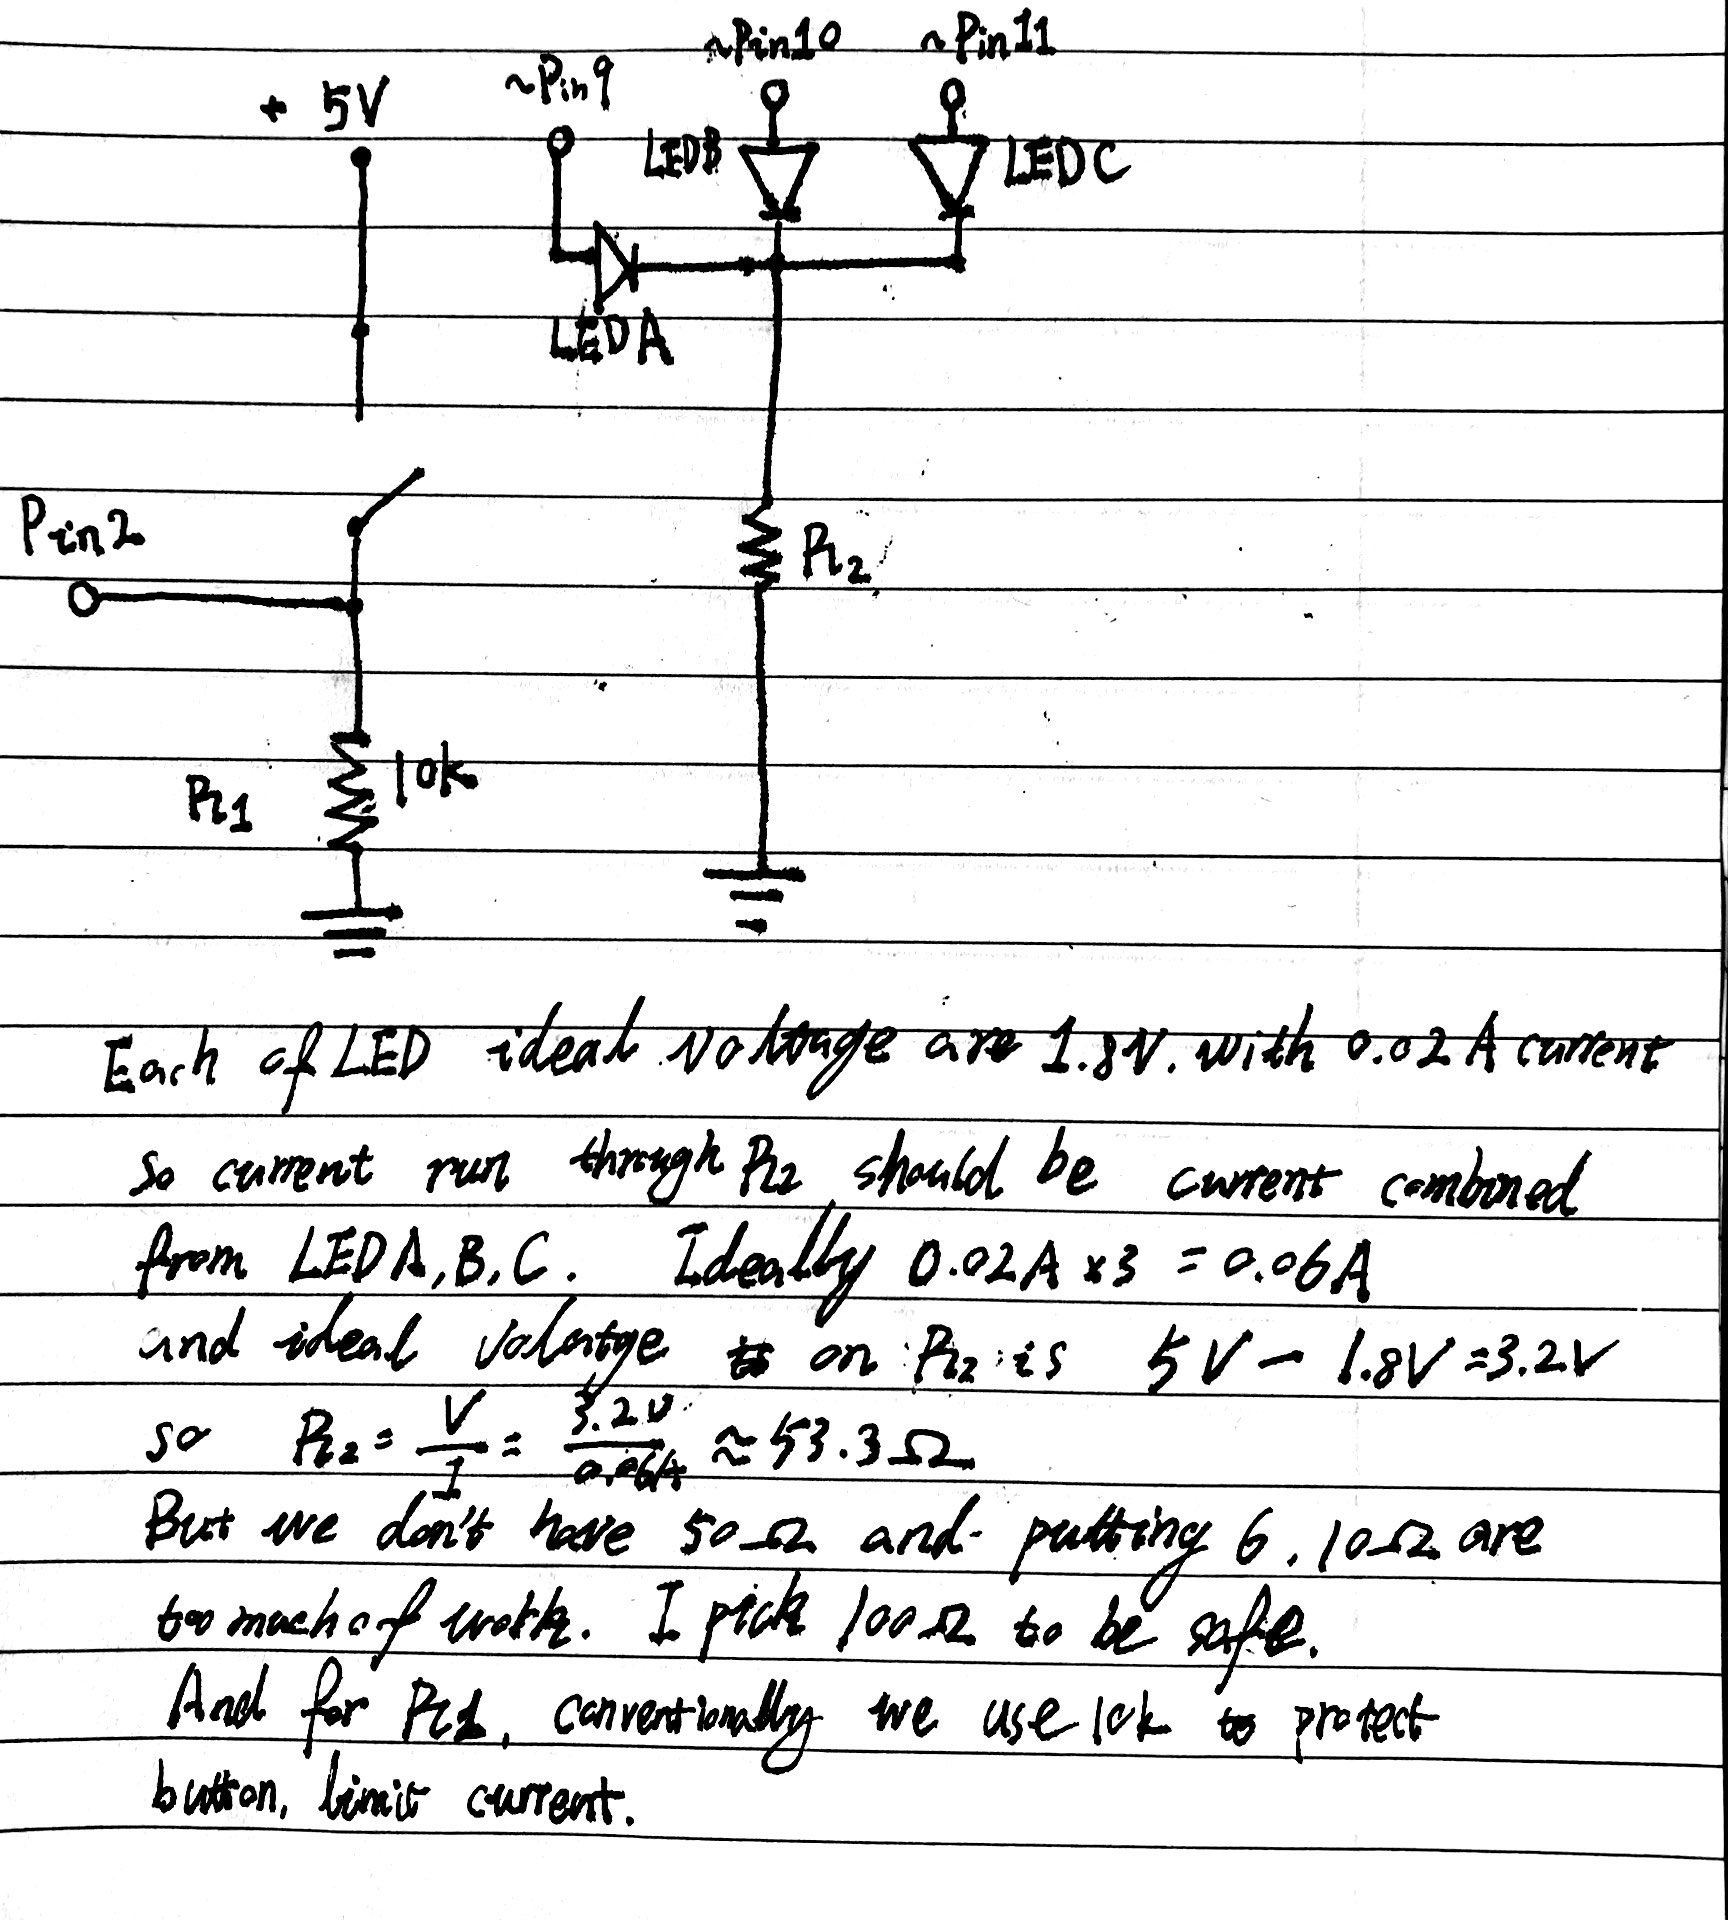 ~Pin10 ~Pin11
+ 5V ~Pin9
LEDB LEDC
LEDA
Pin2
R2
R1 10k
Each of LED ideal voltage are 1.8V. with 0.02A current
so current run through R2 should be current combined
from LEDA, B, C. Ideally 0.02A x3 = 0.06A
and ideal volatge on R2 is 5V - 1.8V = 3.2V
so R2 = V/I = 3.2V/0.06A ≈ 53.3Ω
But we don't have 50Ω and putting 6, 10Ω are
too much of work. I pick 100Ω to be safe.
And for R1, conventionally we use 10k to protect
button, limit current.